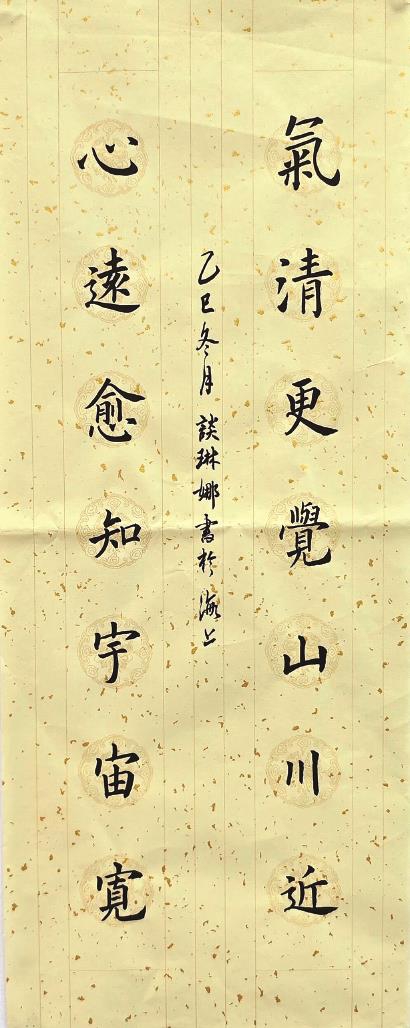 氣清更覺山川近
心遠愈知宇宙寬
乙巳冬月 談琳娜書於海上